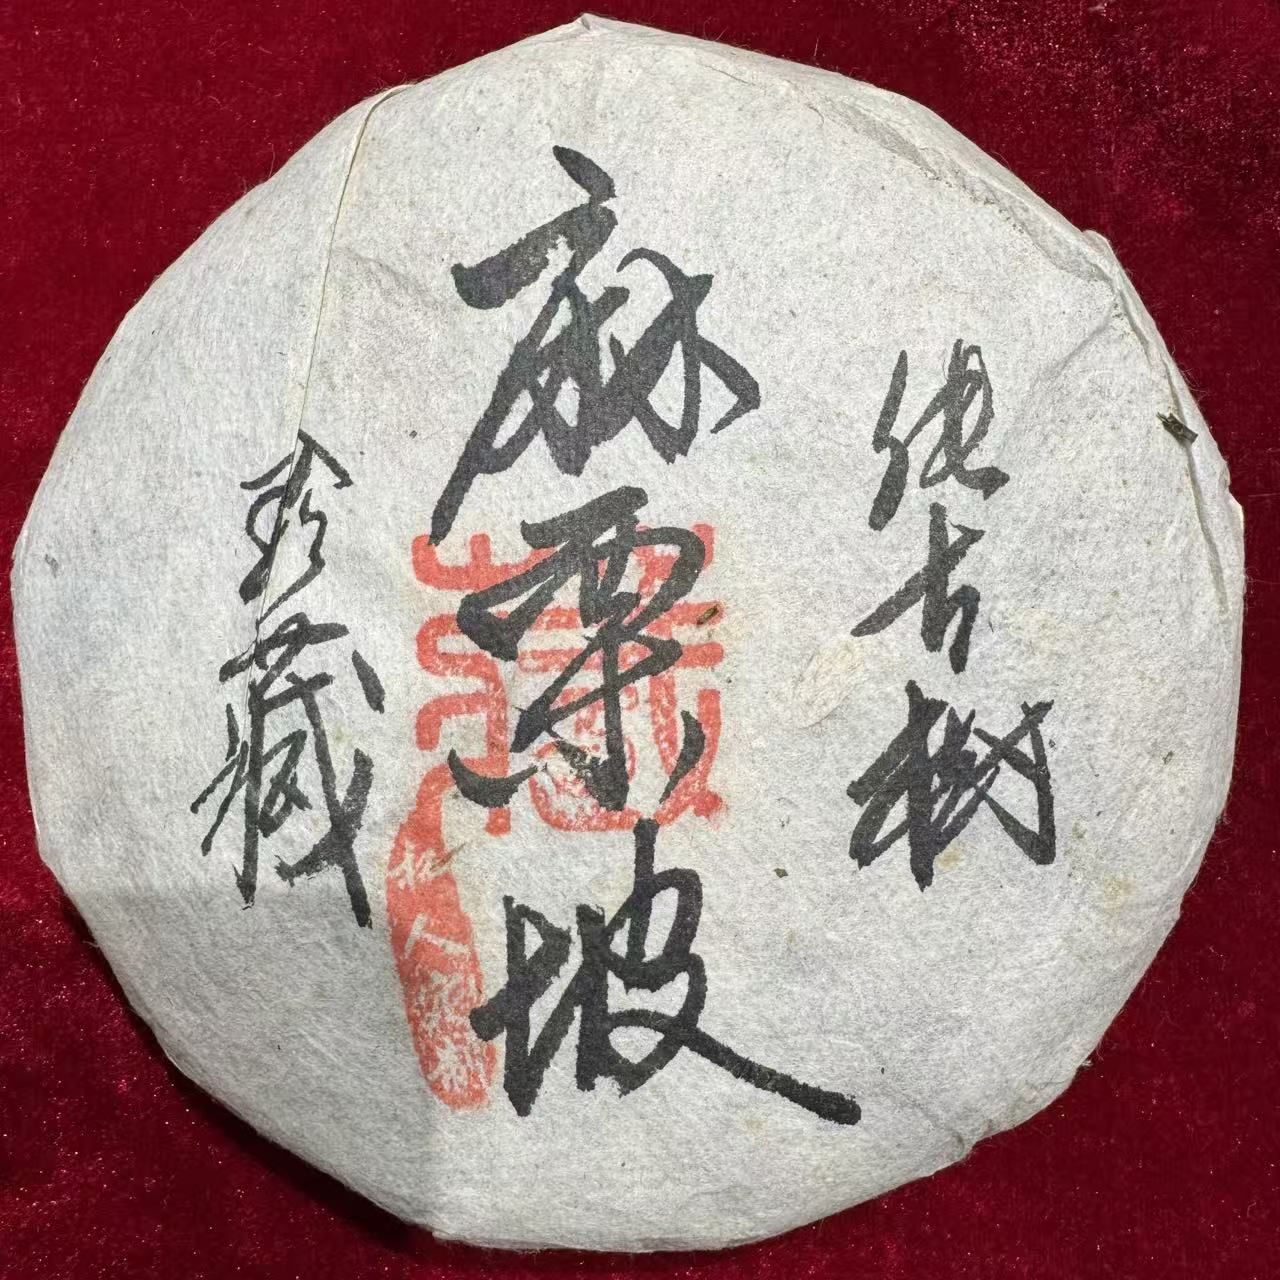 纯古树
麻栗坡
珍藏
珍藏